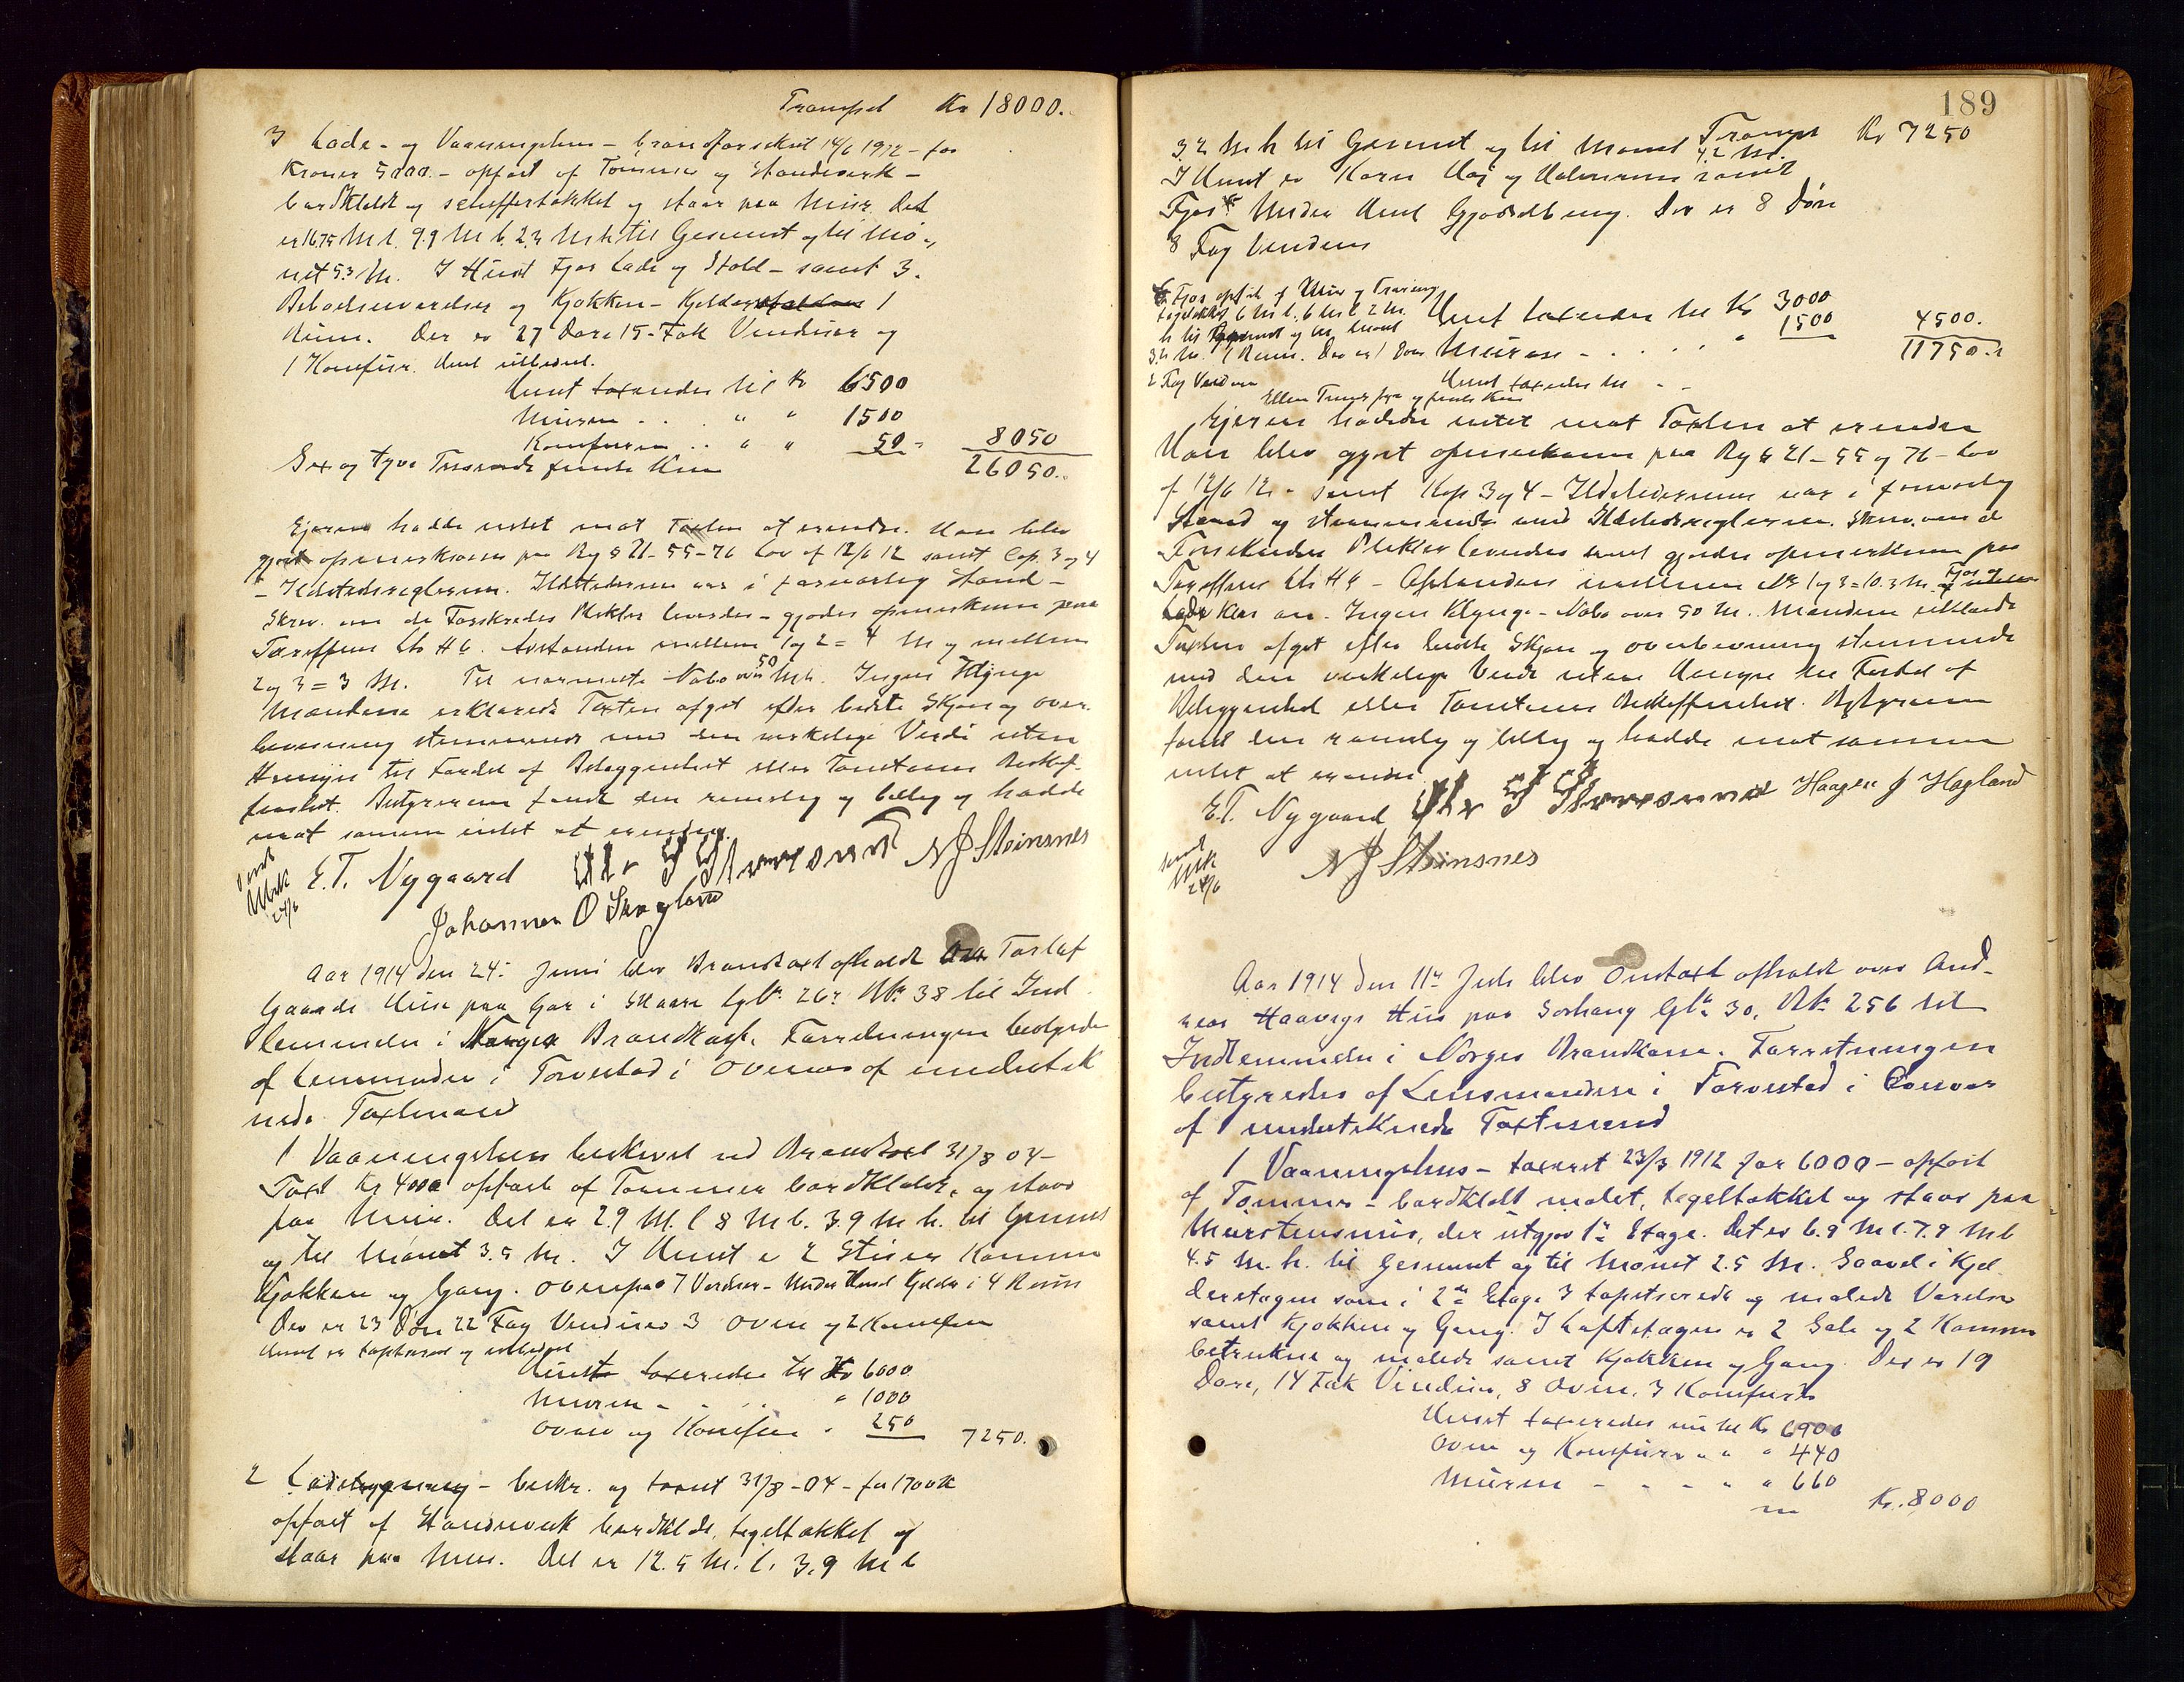 Transpt Kr 18000.
3 Lade- og Vaaningshus - brandforsikret 14/6 1912 - for
Kroner 5000.- opført af Tømmer og Standverk -
bordklædt og skiffertækket og staar paa Mur. Det
er 16.75 M l. 9.9 M b. 2.3 M h til Gesimst og til Mø-
net 5.3 M. I Huset Fjøs Lade og Stald - samt 3
Beboelsesværelser og Kjøkken - Kjelder 1
Rum. Der er 27 Døre 15 - Fak Vinduer og
1 Komfur. Huset utbedret.
Huset taxeredes til Kr 6500
Muren - . . " " 1500
Komfuren . . " " 50 - 8050
Sex og tyve Tusende femti Kr 26050..
Ejeren hadde intet mot Taxten at erindre. Han blev
gjort opmerksom paa Byg § 21-55-76 Lov af 12/6 12 samt Cap. 3 og 4
- Ildstedsreglerne. Ildstederne var i forsvarlig Stand -
Skrev. om de Forsikredes Plikter leverdes - gjordes opmerksom paa
Tariffens Litr H 6. Avstanden mellem 1 og 2 = 4 M og mellem
2 og 3 = 3 M. Til nærmeste Nabo over 50 M. Ingen Klynge
Mændene erklærede Taxten afgit efter bedste Skjøn og over-
bevisning stemmende med den virkelige Verdi uten
Hensyn til Fordel af Beliggenhet eller Tomtens Beskaf-
fenhet. Bestyreren fandt den rimelig og billig og hadde
mot samme intet at erindre.
E.T. Nygaard N J Steinsnes
Johannes O Skogland
sendt
Utsk
24/6
Aar 1914 den 24. Juni blev Brandtaxt afholdt over Torleif
Gaards Hus paa Gar i Skaare Gbr. 26. Br. 38 til Ind
lemmelse i Norges Brandkasse. Forretningen bestyredes
af Lensmanden i Torvestad i Overvær af underteg
nede Taxtmænd
1 Vaaningshus beskrevet ved Brandtaxt 31/8 04 -
Taxt Kr 4000 opført af Tømmer bordklædt, og staar
paa Mur. Det er 2.9 M. l 8 M b. 3.9 M h. til Gesimst
og til Mønet 3.5 M. I Huset er 2 Stuer Kammer
Kjøkken og Gang. Ovenpaa 7 Værelser - Under Huset Kjelder i 4 Rum
Der er 23 Døre 22 Fag Vinduer 3 Ovne og 2 Komfur
Huset er tapetseret og utbedret
Huset taxeredes til Kr 6000
Muren - . . . " 1000
Ovne og Komfur " 250 7250.
2 Ladebygning - beskr. og taxeret 31/8 - 04 - for 1700 Kr
opført af Standverk bordklædt, tegeltækket og
staar paa Mur. Det er 12.5 M. l. 3.9 M b
189
Transpt Kr 7250
3.2 M h til Gesimst og til Mønet 4.2 M.
I Huset er Korn Høj og Halmrum samt
Fjøs. Under Huset Gjødselbeng. Der er 8 Døre
8 Fag Vinduer
Fjøs opført af Mur og Træverk
tegeltækket 6 M l. 6 M b 2 M
h til Gesimst og til Mønet
3.2 M. 1 Rum. Der er 1 Dør
2 Fag Vinduer
Huset taxeredes til Kr 3000
Muren - . . . " 1500 4500.
Huset taxeredes til - - 11750.-
Elleve Tusend syv og femti Kr
Ejeren hadde intet mot Taxten at erindre
Han blev gjort opmerksom paa Byg § 21-55 og 76 - Lov
af 12/6 12 - samt Kap 3 og 4 - Ildstederne var i forsvarlig
Stand og stemmende med Ildstedsreglerne. Skrev. om de
Forsikredes Plikter leverdes samt gjordes opmerksom paa
Tariffens Litr H 6 - Afstanden mellem No 1 og 3 = 10.3 M. Fjøs og
Lade Klos an. Ingen Klynge - Nabo over 50 M. Mændene erklærede
Taxten afgit efter bedste Skjøn og overbevisning stemmende
med den virkelige Verdi uten Hensyn til Fordel af
Beliggenhet eller Tomtens Beskaffenhet. Bestyreren
fandt den rimelig og billig og hadde mot samme
intet at erindre.
E.T. Nygaard Haagen J Hagland
N J Steinsnes
sendt
Utsk
24/6
Aar 1914 den 11te Juli blev Omtaxt afholdt over And-
reas Haavigs Hus paa Sørhaug Gbr. 30. Br. 256 til
Indlemmelse i Norges Brandkasse. Forretningen
bestyredes af Lensmanden i Torvestad i Overvær
af undertegnede Taxtmænd
1 Vaaningshus - taxeret 23/3 1912 for 6000 - opført
af Tømmer - bordklædt malet, tegeltækket og staar paa
Murstensmur, der utgjør 1ste Etage. Det er 6.9 M l. 7.9 M b
4.5 M. h. til Gesimst og til Mønet 2.5 M. Saavel i Kjel
deretagen som i 2den Etage 3 tapetserede og malede Værelser
samt Kjøkken og Gang. I Loftetagen er 2 Sale og 2 Kammer
betrukne og malede samt Kjøkken og Gang. Der er 19
Døre, 14 Fak Vinduer, 8 Ovne, 3 Komfurer
Huset taxeredes nu til Kr 6900
Ovne og Komfurer " " " 440
Muren - - - " " 660
Kr. 8000